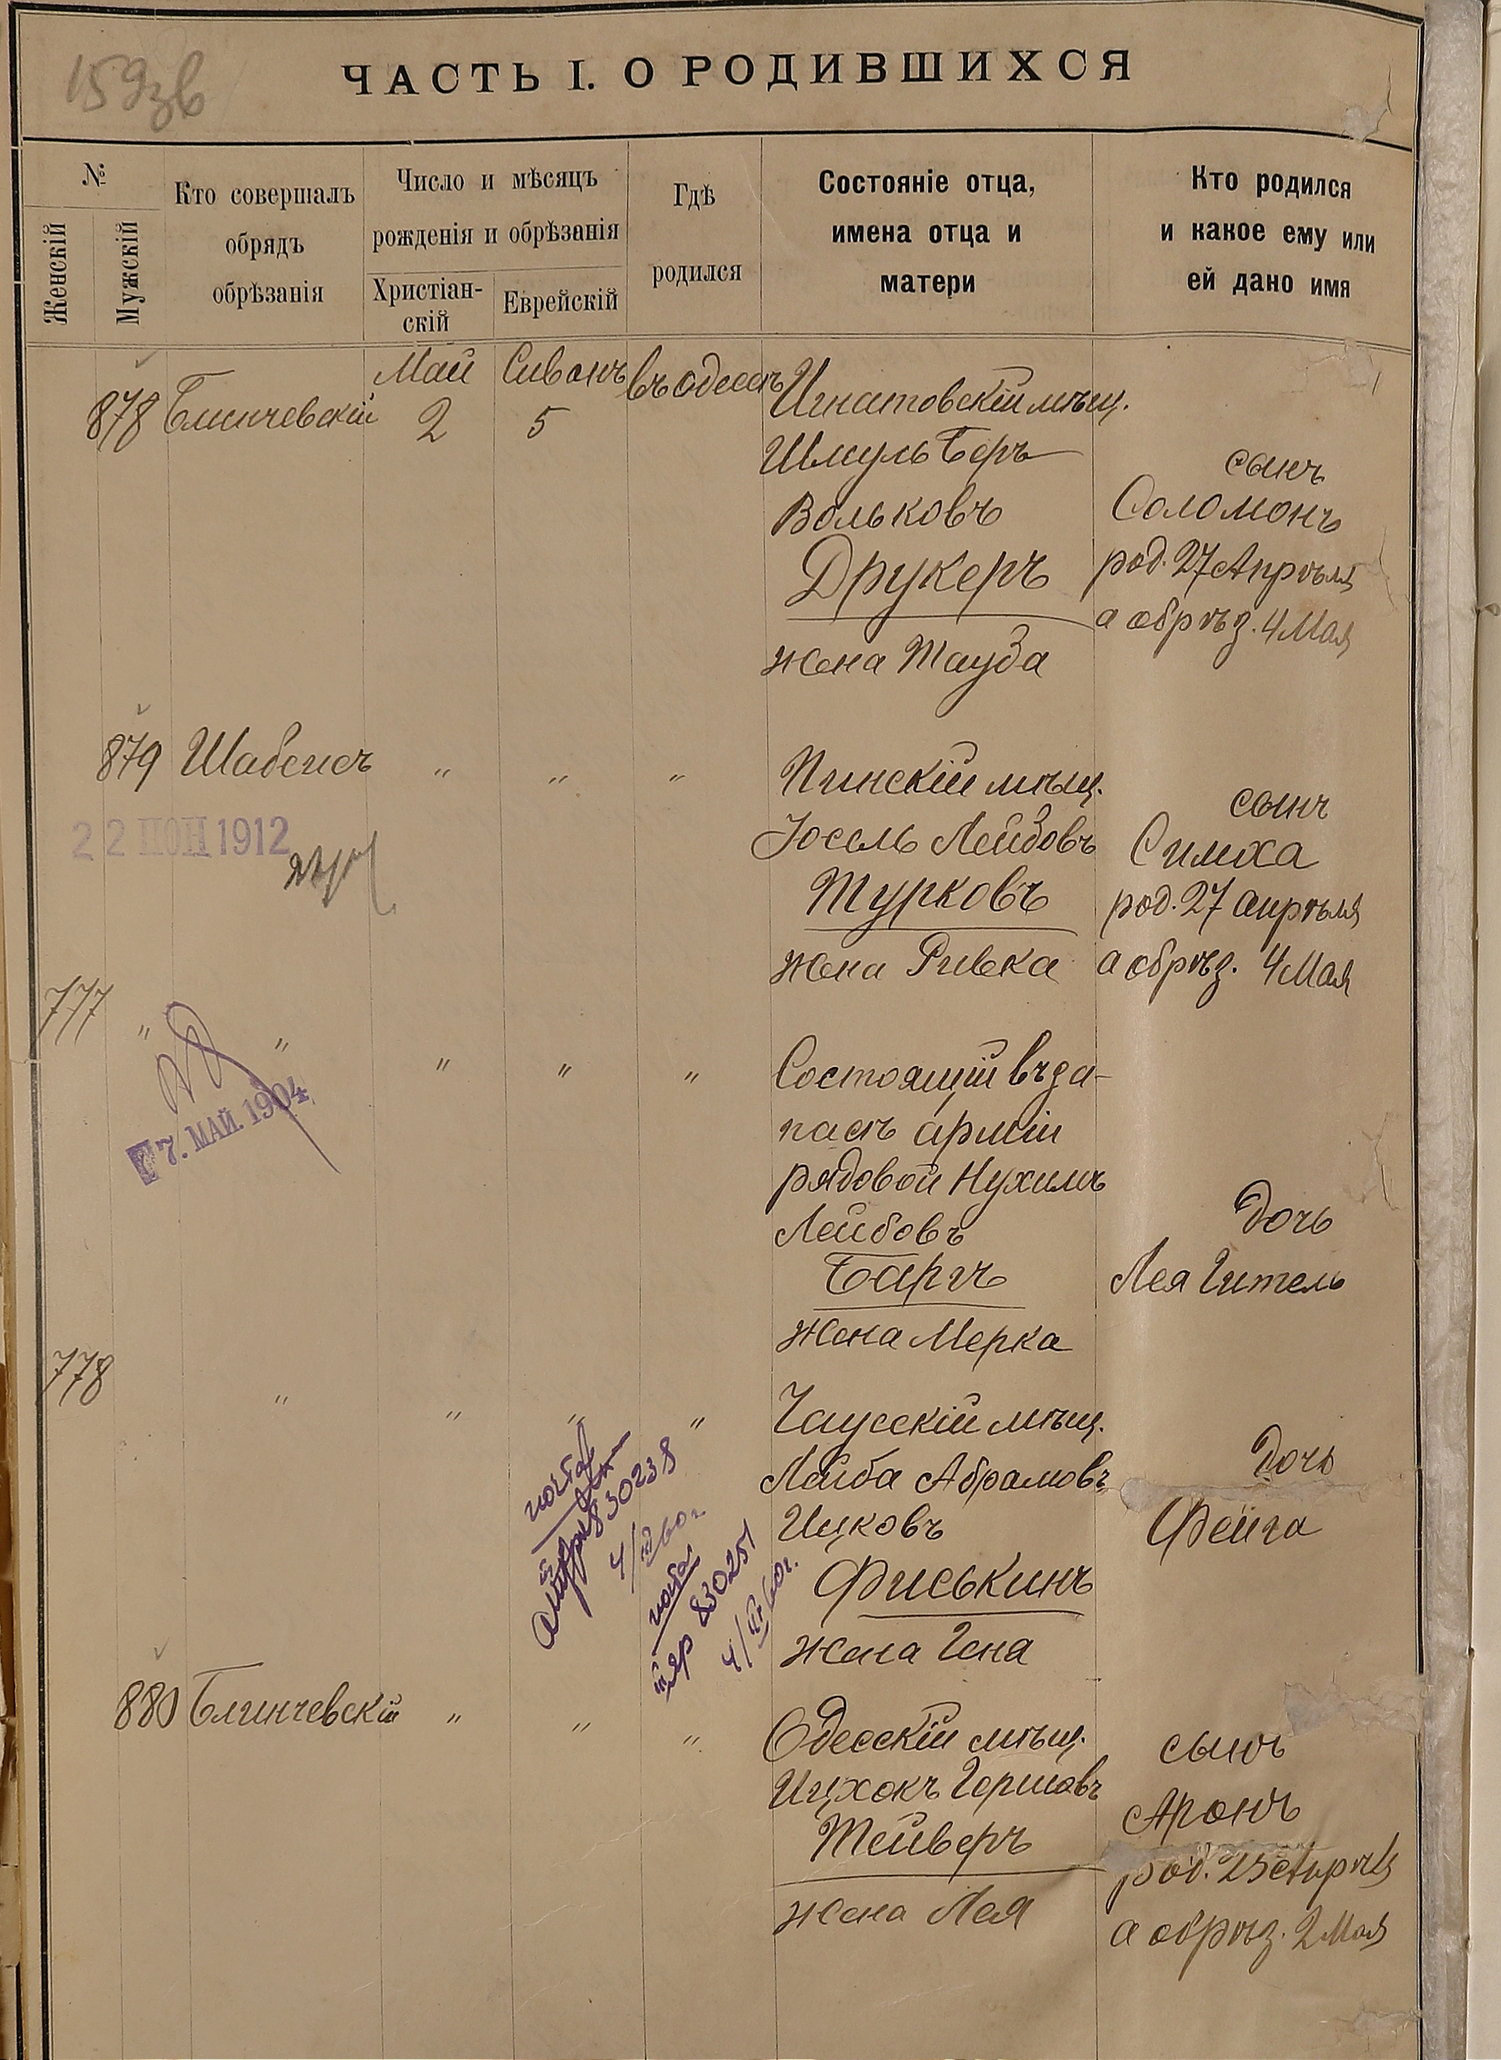 159зв
ЧАСТЬ I. О РОДИВШИХСЯ
№
Женскій
Мужскій
Кто совершалъ
обрядъ
обрѣзанія
Число и мѣсяцъ
рожденія и обрѣзанія
Христіан-
скій
Еврейскій
Гдѣ
родился
Состояніе отца,
имена отца и
матери
Кто родился
и какое ему или
ей дано имя
Май Сиванъ въ Одессѣ
878 Блинчевскій 2 5
Игнатовскій мѣщ.
Шмуль Беръ
Вольковъ
Друкеръ
жена Тауба
сынъ
Соломонъ
род. 27 Апрѣля
а обрѣз. 4 Мая
879 Шабсисъ " " "
22 ИЮН 1912
Пинскій мѣщ.
Іосель Лейбовъ
Турковъ
жена Ривка
сынъ
Симха
род. 27 апрѣля
а обрѣз. 4 Мая
777 " " " " "
7. МАЙ. 1904
Состоящій въ за-
пасѣ арміи
рядовой Нухимъ
Лейбовъ
Баргъ
жена Мерка
дочь
Лея Гитель
778 " " " "
Чаусскій мѣщ.
Лейба Абрамовъ
Ицковъ
Фиськинъ
жена Гена
дочь
Фейга
830238
4/III 60г.
830251
4/III 60г.
880 Блинчевскій " " "
Одесскій мѣщ.
Ицхокъ Гершовъ
Тейверъ
жена Лея
сынъ
Аронъ
род. 25 Апрѣля
а обрѣз. 2 Мая